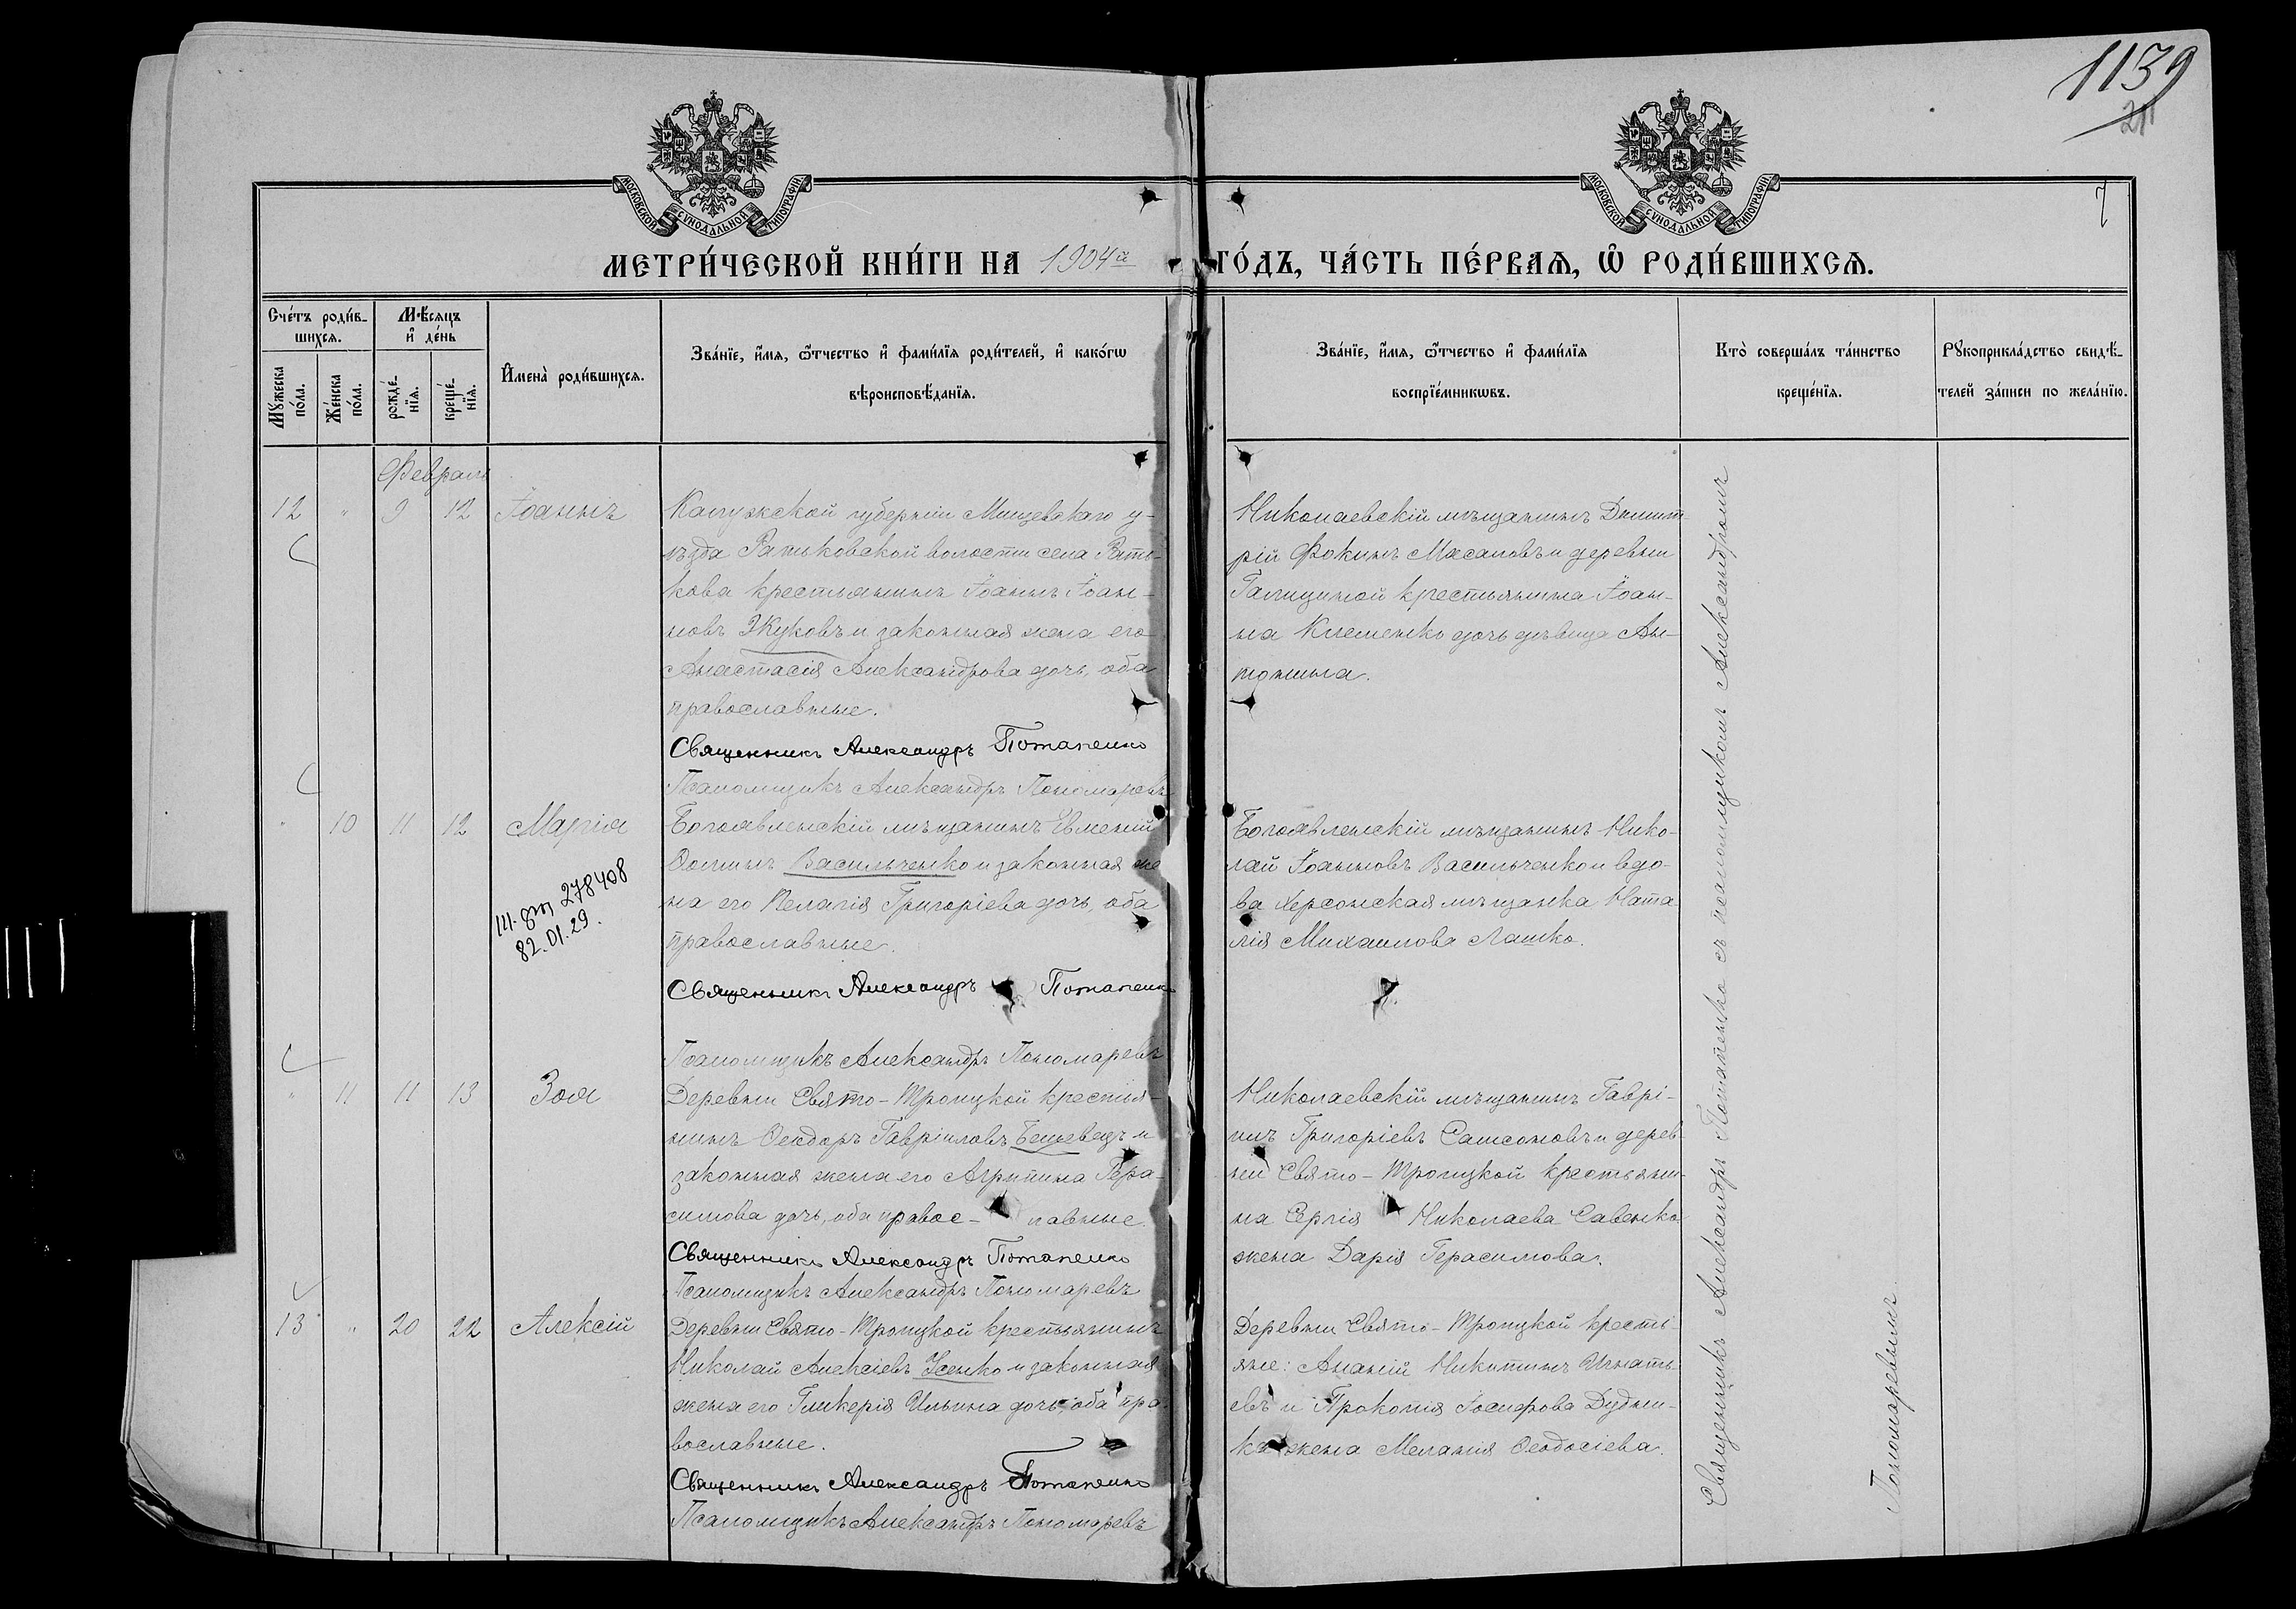 1139
21
7
МОСКОВСКОЙ СѴНОДАЛЬНОЙ ТИПОГРАФІИ.
МОСКОВСКОЙ СѴНОДАЛЬНОЙ ТИПОГРАФІИ.
МЕТРИ́ЧЕСКОЙ КНИ́ГИ НА 1904й ГО́ДЪ, ЧА́СТЬ ПЕ́РВАѦ, Ѡ҆ РОДИ́ВШИХСѦ.
Сче́тъ роди́в-
шихсѧ.
Мꙋ́жеска по́ла.
Же́нска по́ла.
Мѣ́сѧцъ
и҆ де́нь
рожде́-
нїѧ.
креще́-
нїѧ.
И҆мена̀ роди́вшихсѧ.
Зва́нїе, и҆́мѧ, ѻ҆́тчество и҆ фами́лїѧ роди́телей, и҆ како́гѡ
вѣроисповѣ́данїѧ.
Зва́нїе, и҆́мѧ, ѻ҆́тчество и҆ фами́лїѧ
воспрїе́мникѡвъ.
Кто̀ соверша́лъ та́инство
креще́нїѧ.
Рꙋкоприкла́дство свидѣ́-
телей за́писи по жела́нїю.
Февраль
12 " 9 12 Іоаннъ
Калужской губерніи Мищевскаго у-
ѣзда Ратьковской волости села Рать-
кова крестьянинъ Іоаннъ Іоан-
новъ Жуковъ и законная жена его
Анастасія Александрова дочь, оба
православные.
Священникъ Александръ Потапенко
Псаломщикъ Александръ Пономаревъ
Николаевскій мѣщанинъ Димит-
рій Фокинъ Масаловъ и деревни
Галициной крестьянина Іоан-
на Клеменко дочь дѣвица Ан-
тонина.
" 10 11 12 Марія
Ш. 278408
82.01.29.
Богоявленскій мѣщанинъ Евмений
Ѳоминъ Васильченко и законная же
на его Пелагія Григоріева дочь, оба
православные.
Священникъ Александръ Потапенко
Псаломщикъ Александръ Пономаревъ
Богоявленскій мѣщанинъ Нико-
лай Іоанновъ Васильченко и вдо-
ва Херсонская мѣщанка Ната
лія Михаилова Лашко.
" 11 11 13 Зоя
Деревни Свято-Троицкой крестья-
нинъ Ѳеодоръ Гавріиловъ Бешевецъ и
законная жена его Агрипина Гера-
симова дочь, оба правос- лавные.
Священникъ Александръ Потапенко
Псаломщикъ Александръ Пономаревъ
Николаевскій мѣщанинъ Гаврі-
илъ Григоріевъ Самсоновъ и дерев
ни Свято-Троицкой крестьяни-
на Сергія Николаева Савенко
жена Дарія Герасимова.
13 " 20 22 Алексій
Деревни Свято-Троицкой крестьянинъ
Николай Алексіевъ Усенко и законная
жена его Гликерія Ильина дочь, оба пра
вославные.
Священникъ Александръ Потапенко
Псаломщикъ Александръ Пономаревъ
Деревни Свято-Троицкой кресть-
яне: Ананій Никитинъ Игнать
евъ и Прокопія Іосифова Дудни-
ка жена Меланія Ѳеодосіева.
Священникъ Александръ Потапенко съ псаломщикомъ Александромъ
Пономаревымъ